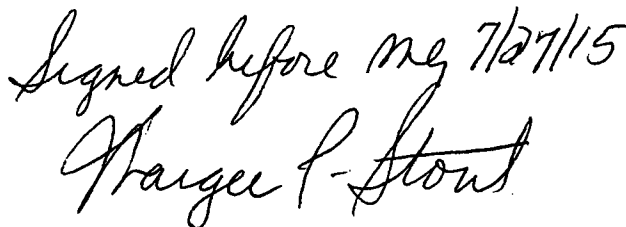 Signed before me, 7/27/15
Margee P. Stout